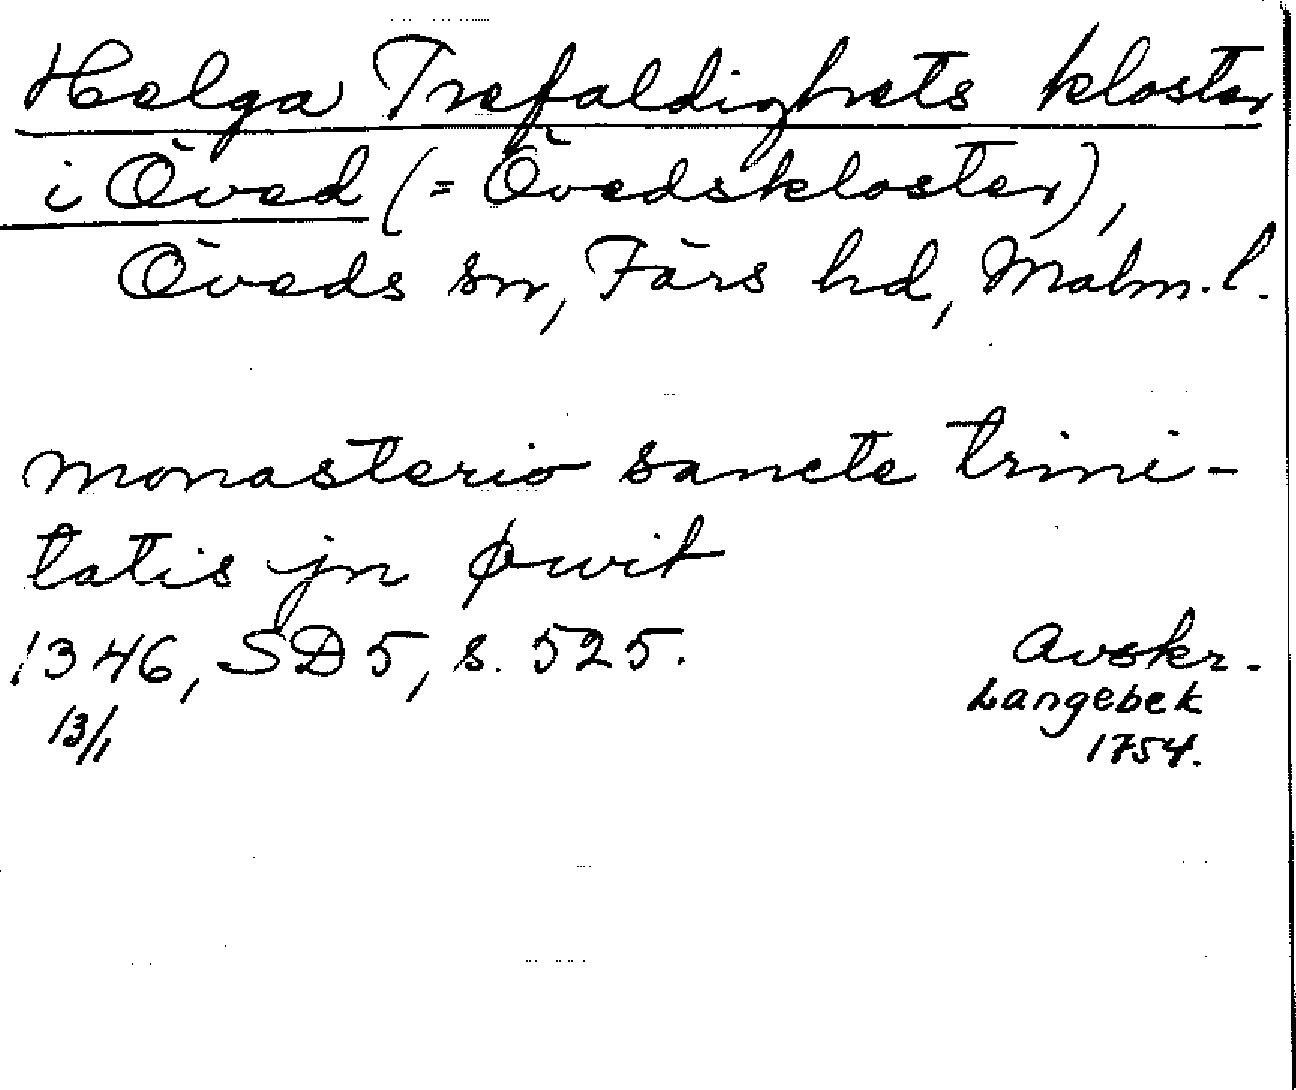 Helga Trefaldighets kloster
i Öved (= Övedskloster),
Öveds sn, Färs hd, Malm. l.
monasterio sancte trini-
tatis jn øwit
1346, SD 5, s. 525.
13/1
Avskr.
Langebek
1754.